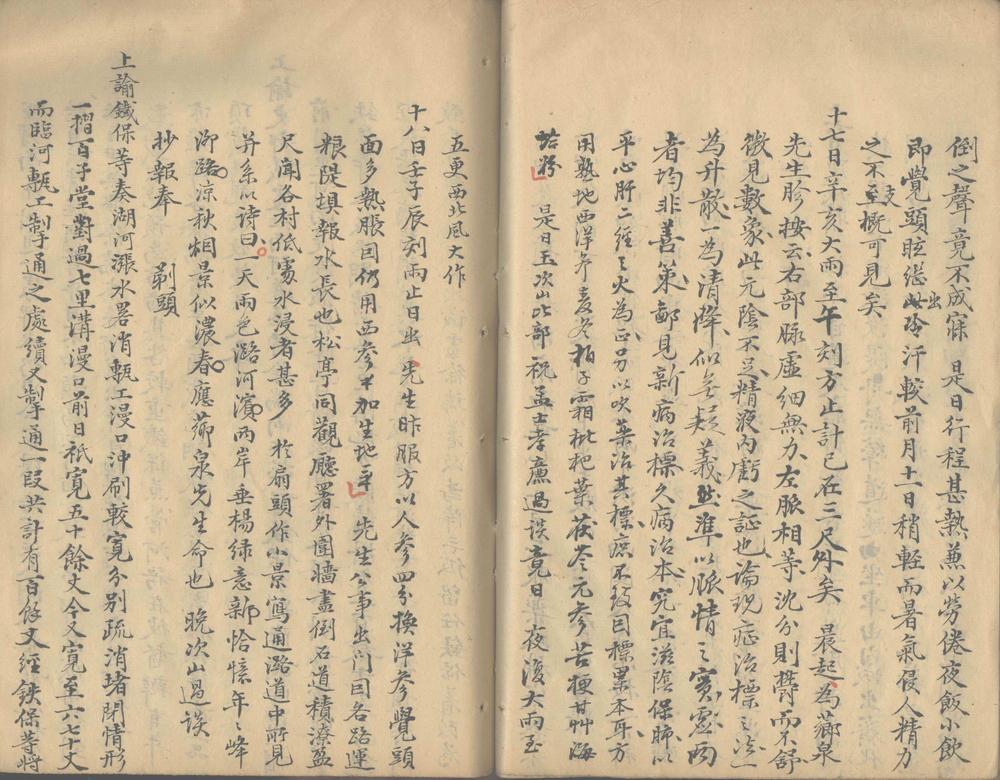 倒之聲竟不成寐 是日行程甚熱兼以勞倦夜飯小飲
即覺頭眩繼出冷汗較前月十一日稍輕而暑氣侵人精力
之不支至概可見矣
十七日辛亥大雨至午刻方止計已在三尺外矣 晨起為薌泉
先生胗按云右部脉虛細無力左脈相等沈分則欝而不舒
微見數象此元陰不足精液內虧之証也論現症治標之法一
為升散一為清降似無起義然準以脈情之實虛兩
者均非善策鄙見新病治標久病治本究宜滋陰保肺以
平心肝二經之火為正另以吹藥治其標庶不致因標累本耳方
用熟地西洋參麦冬柏子霜枇杷葉茯苓元參苦梗甘艸海
蛤粉 是日王次山比部祝孟士孝廉過談竟日 夜復大雨至
五更西北風大作
十八日壬子辰刻雨止日出 先生昨服方以人參四分換洋參覺頭
面多熱脹因仍用西參加生地 先生公事出门因各路運
粮隄埧報水長也松亭同觀廳署外圍墻盡倒石道積潦盈
尺聞各村低窪水浸者甚多 於扇頭作小景寫通潞道中所見
并系以诗曰一天雨色潞河濵两岸垂楊绿意新恰憶年之峰
泖路涼秋烟景似濃春應薌泉先生命也 晚次山過谈
抄報奉 剃頭
上諭鐵保等奏湖河漲水畧消甎工漫口沖刷較寬分別疏消堵閉情形
一摺百子堂對過七里溝漫口前日祇寬五十餘丈今又寬至六七十丈
而臨河甎工掣通之處續又掣通一段共計有百餘丈經鉄保等將